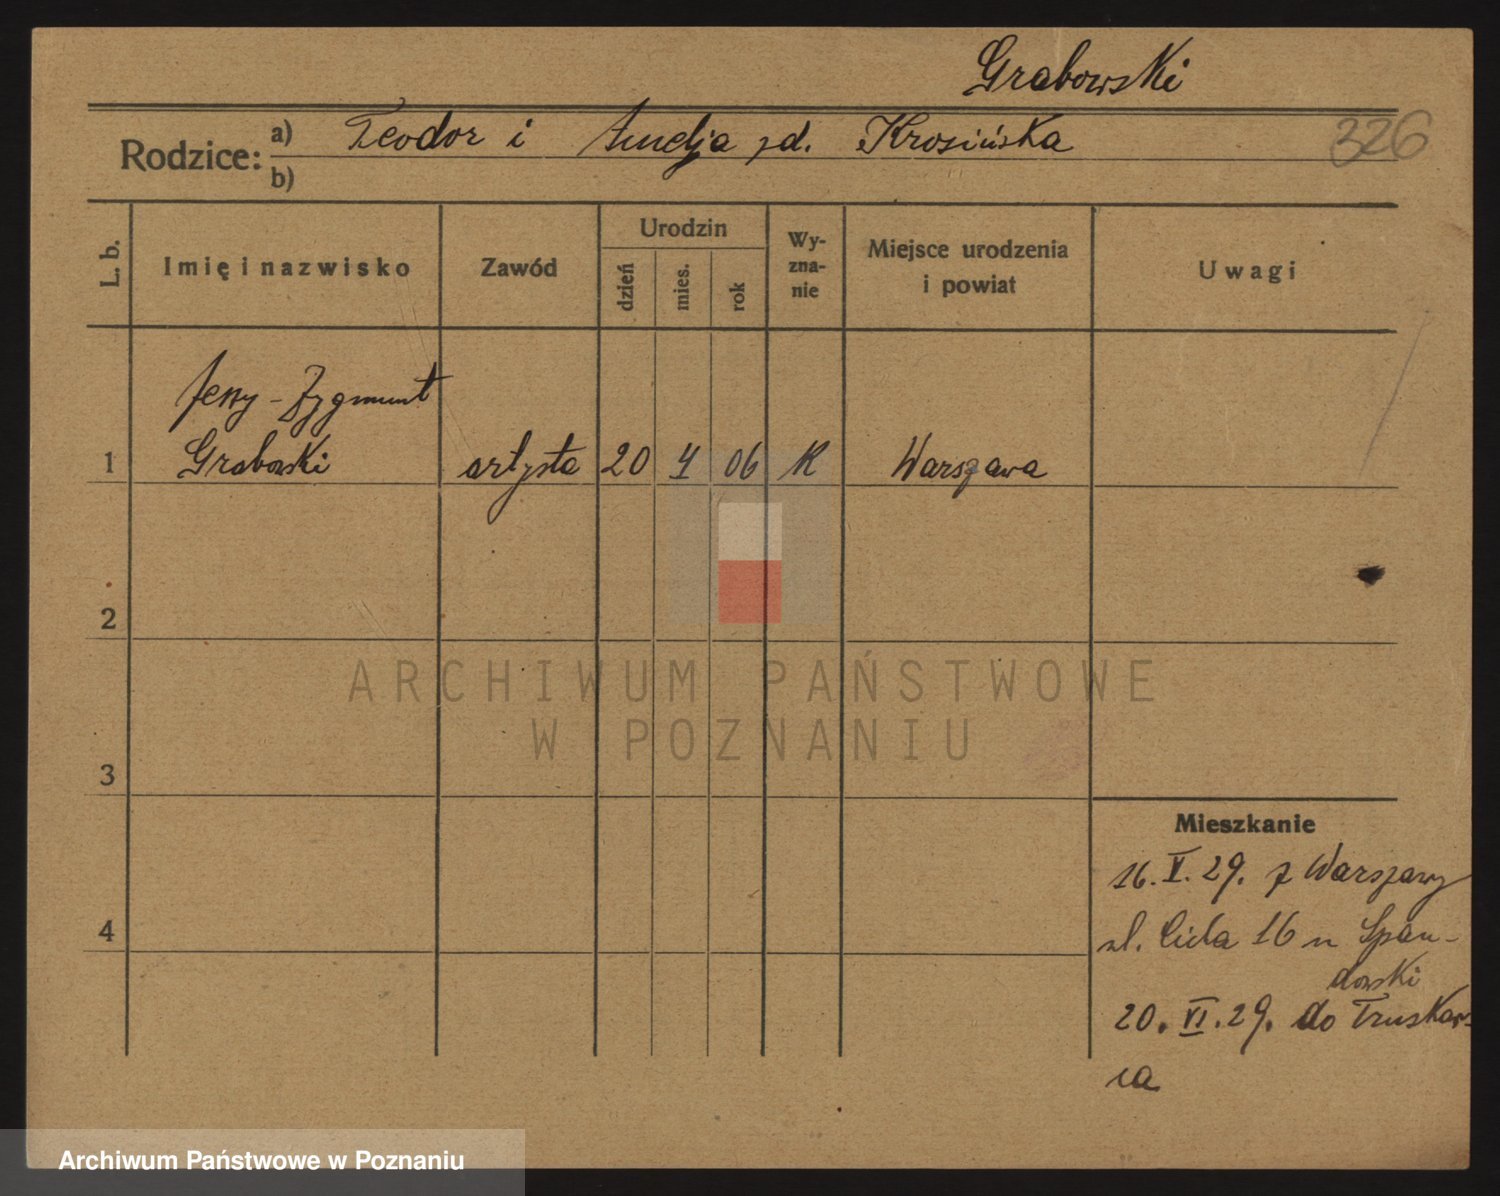 Grabowski
Rodzice: a) Teodor i Amelja zd. Krosińska
b)
326
L. b.
Imię i nazwisko
Zawód
Urodzin
dzień
mies.
rok
Wy-
zna-
nie
Miejsce urodzenia
i powiat
Uwagi
Jerzy - Zygmunt
1 Grabowski artysta 20 4 06 K Warszawa
2
3
4
ARCHIWUM PAŃSTWOWE
W POZNANIU
Mieszkanie
16. V. 29. z Warszawy
16 u Span-
dowski
20. VI. 29. do Truskaw-
ca
Archiwum Państwowe w Poznaniu